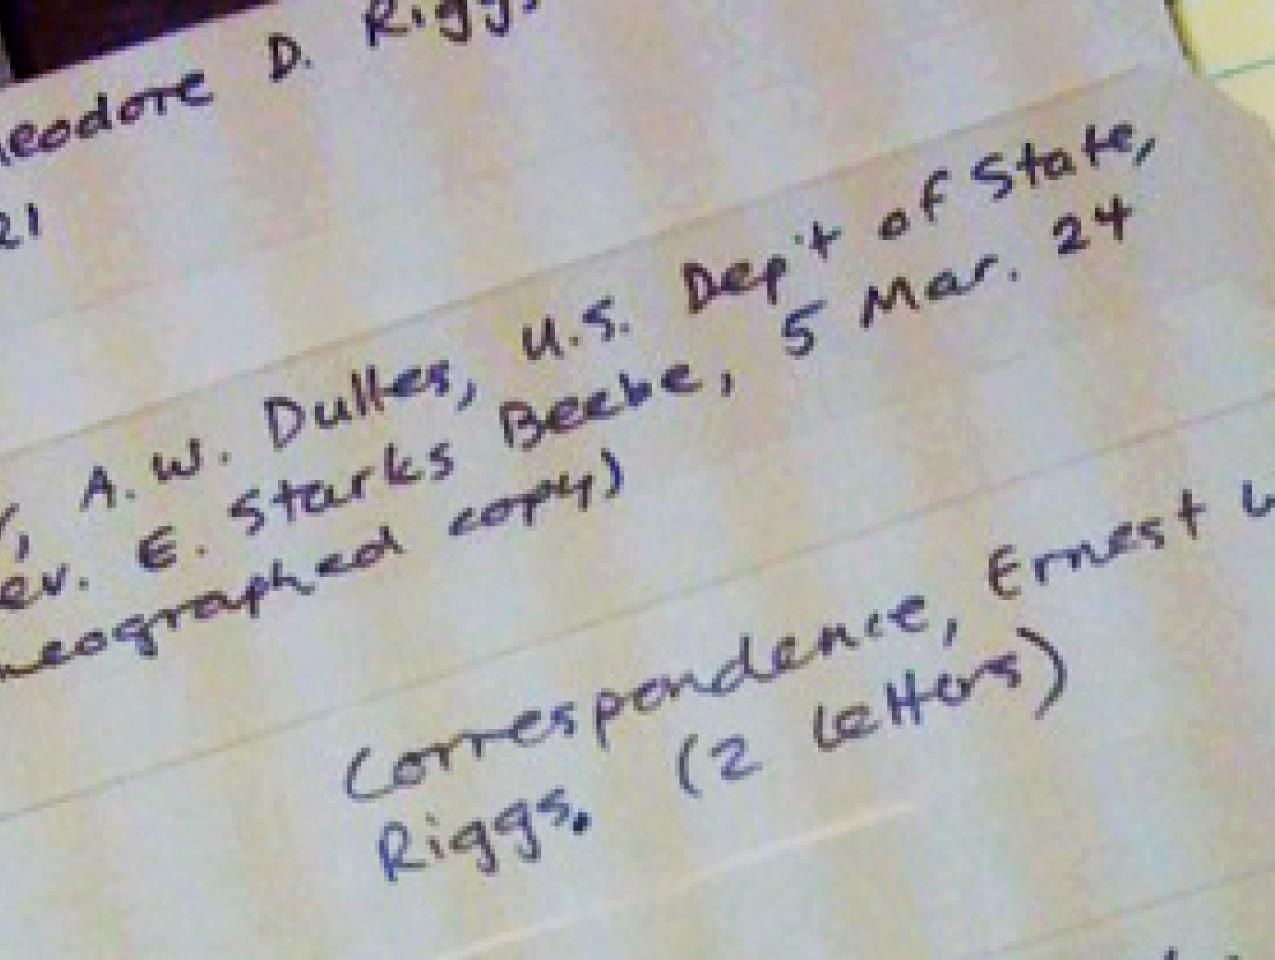 eodore D. Riggs
21
, A. W. Dulles, U.S. Dep't of State,
ev. E. Starks Beebe, 5 Mar. 24
neographed copy)
Correspondence, Ernest W
Riggs. (2 letters)